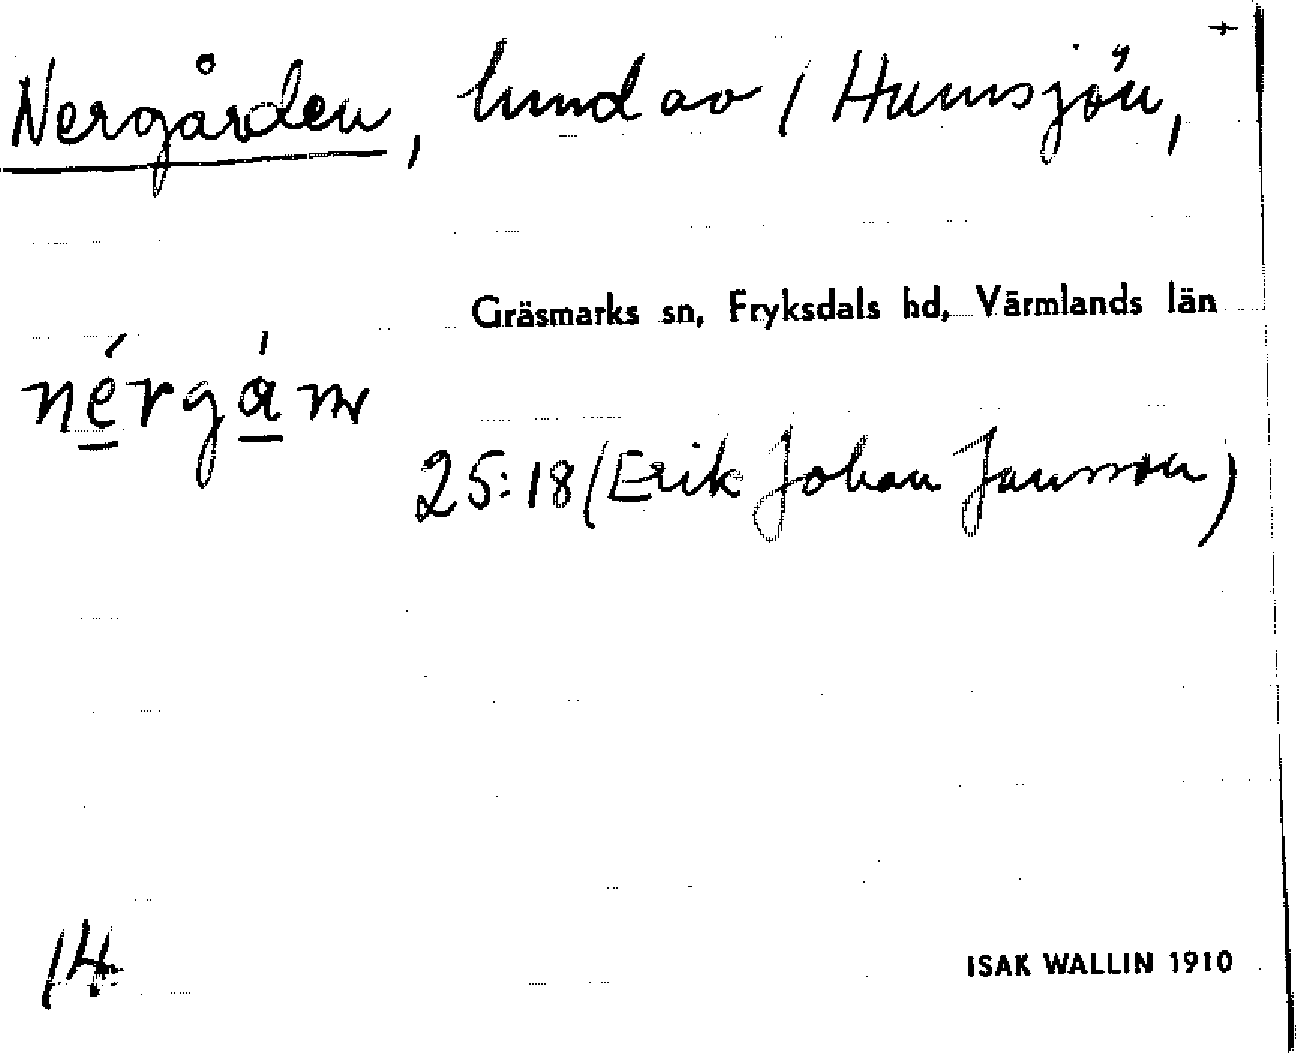 Nergården, hmd av 1 Humsjön,
Gräsmarks sn, Fryksdals hd, Värmlands län
nérgá
25:18 (Erik Johan Jansson)
14
ISAK WALLIN 1910